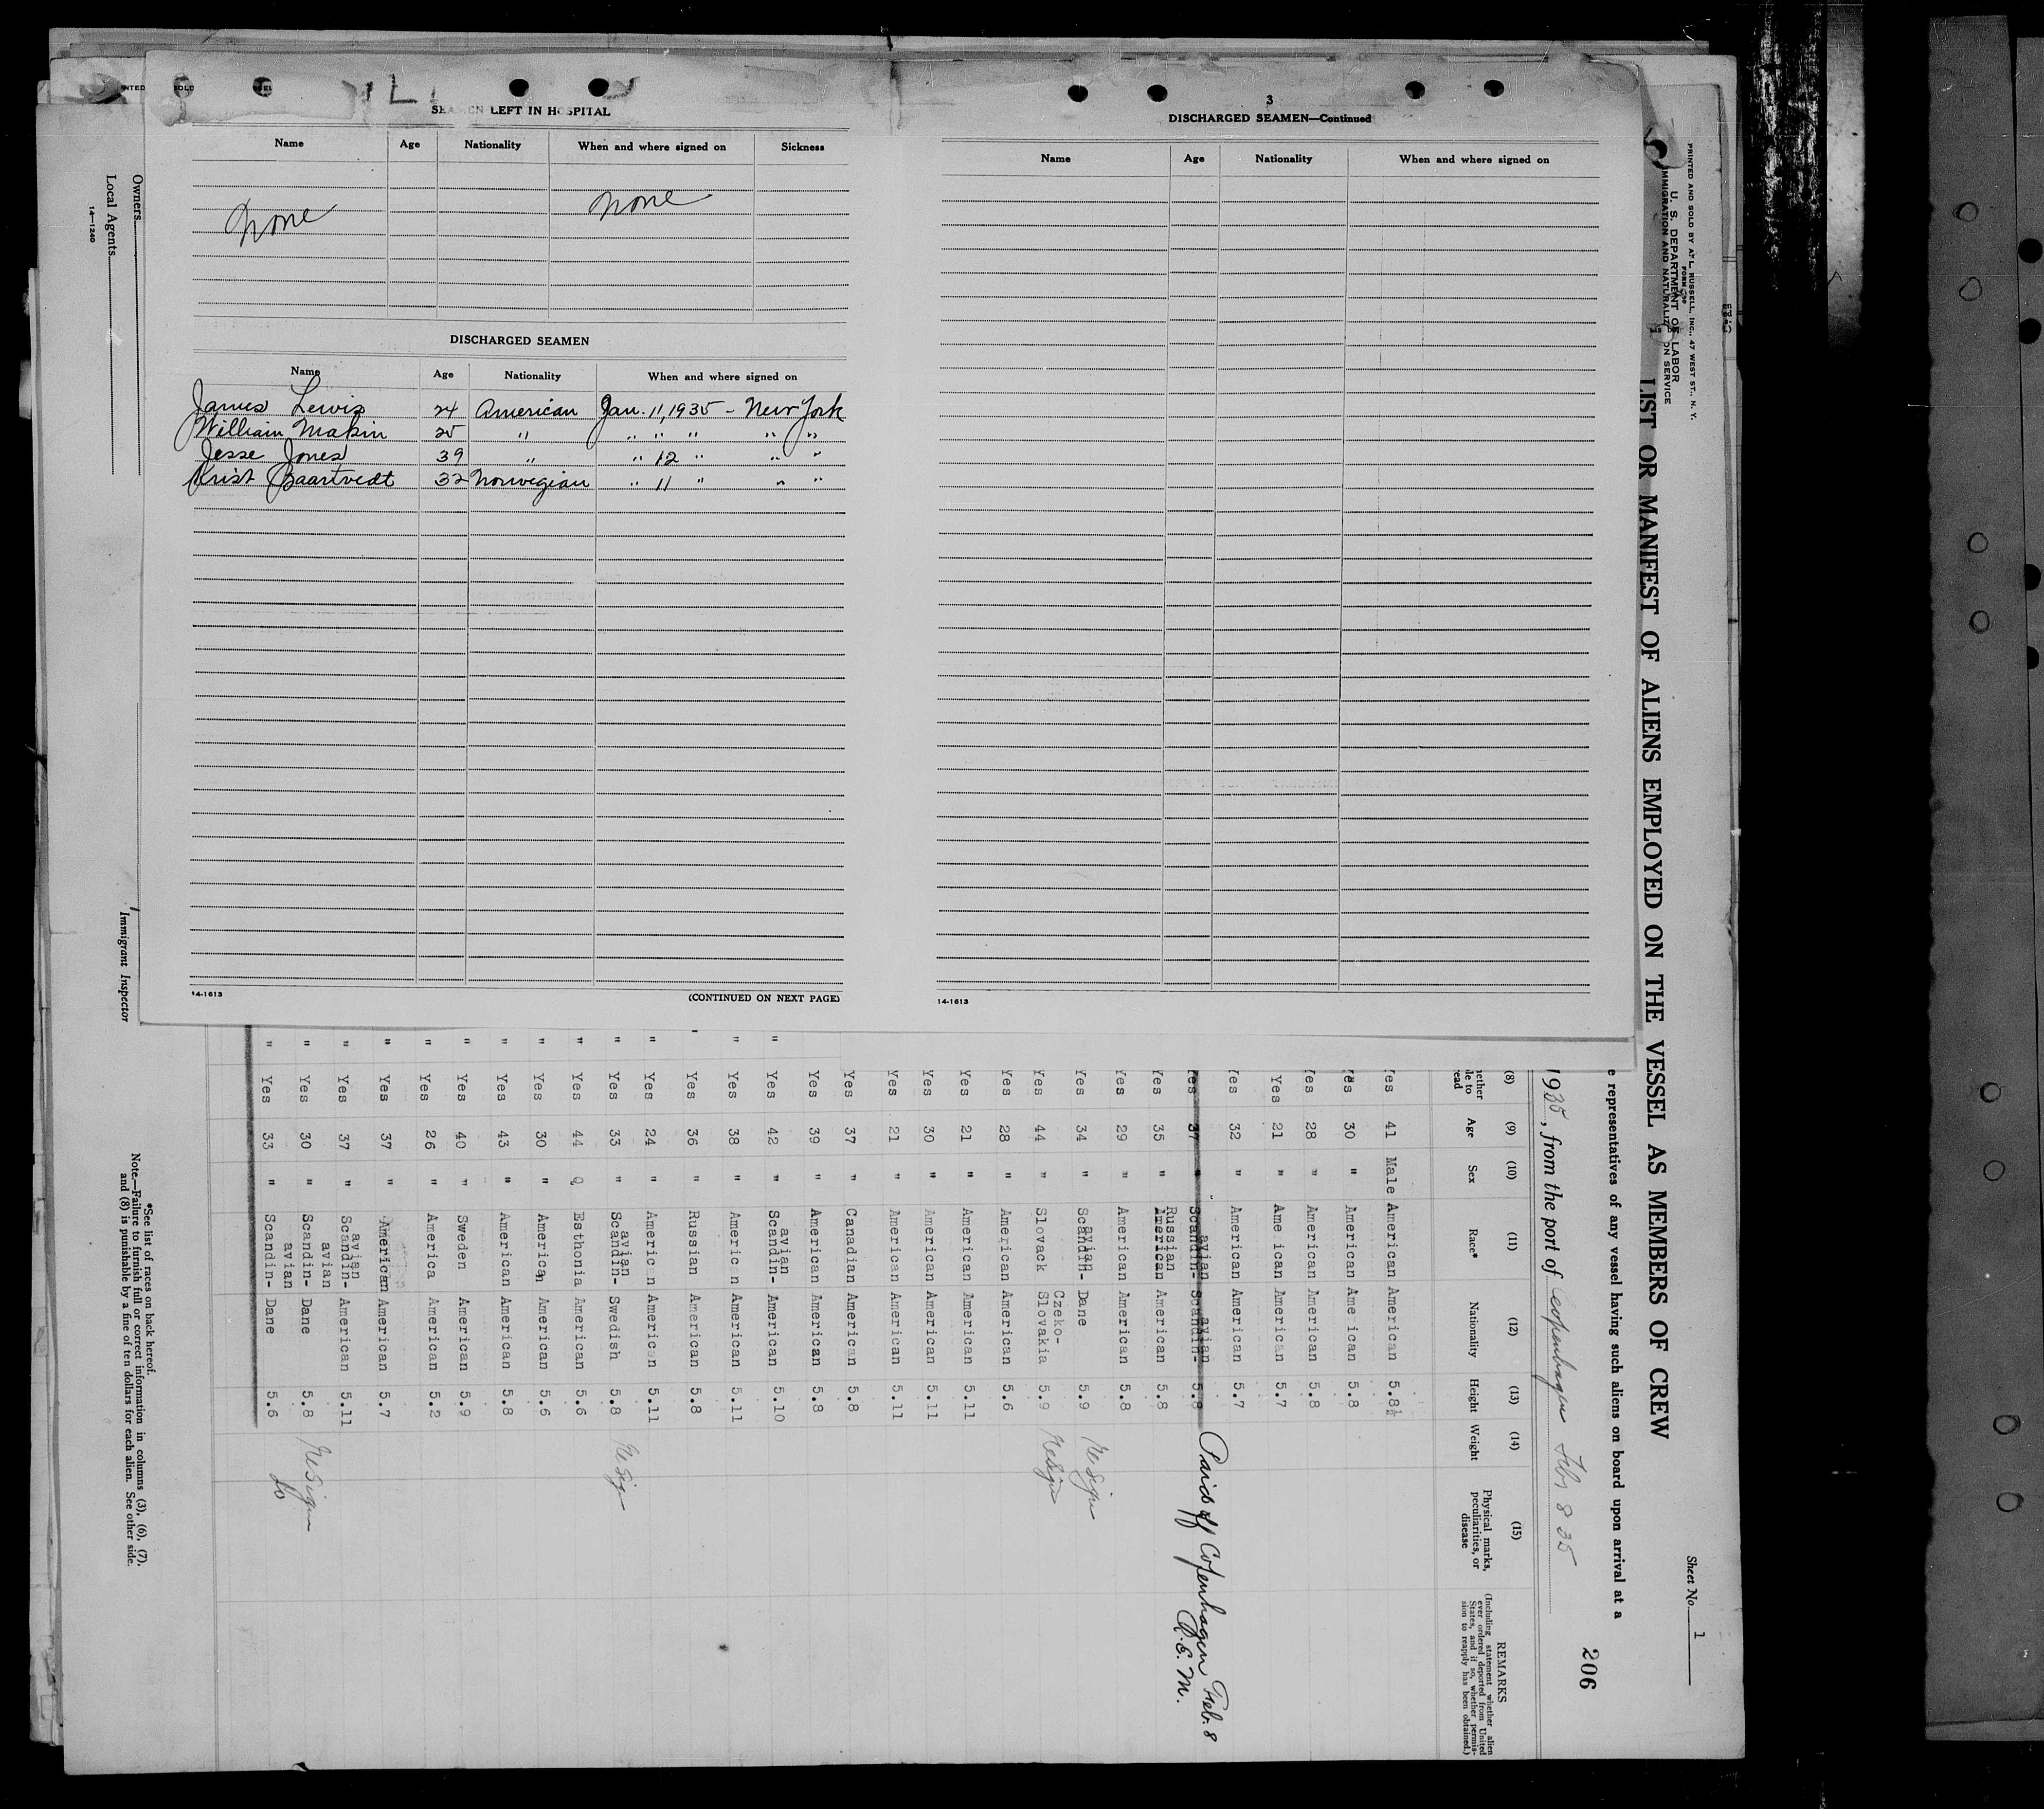 SEAMEN LEFT IN HOSPITAL
Name Age Nationality When and where signed on Sickness
None none
DISCHARGED SEAMEN
Name Age Nationality When and where signed on
James Lewis 24 American Jan. 11, 1935 - New York
William Makin 25 " " " " " "
Jesse Jones 39 " " 12 " " "
Krist Baartvedt 32 Norwegian " 11 " " "
14-1613 (CONTINUED ON NEXT PAGE)
3
DISCHARGED SEAMEN—Continued
Name Age Nationality When and where signed on
14-1613
PRINTED AND SOLD BY A. L. RUSSELL, INC., 47 WEST ST., N. Y.
U. S. DEPARTMENT OF LABOR
IMMIGRATION AND NATURALIZ ON SERVICE
Sheet No. 1
LIST OR MANIFEST OF ALIENS EMPLOYED ON THE VESSEL AS MEMBERS OF CREW
206
e representatives of any vessel having such aliens on board upon arrival at a
1935, from the port of Copenhagen Feb 8 35
(8) (9) (10) (11) (12) (13) (14) (15)
hether le to read Age Sex Race* Nationality Height Weight Physical marks, peculiarities, or disease
REMARKS
(Including statement whether alien ever ordered deported from United States, and if so, whether permission to reapply has been obtained.)
Yes 41 Male American American 5.8½
Yes 30 " American Ame ican 5.8
Yes 28 " American American 5.8
Yes 21 " Ame ican American 5.7
Yes 32 " American American 5.7
Yes 37 " Scandin-avian Scandin-avian 5.8 Paid off Copenhagen Feb. 8
R. E. M.
Yes 35 " American Russian American 5.8
Yes 29 " American American 5.8
Yes 34 " Scandin-avian Dane 5.9 Resign
Yes 44 " Slovack Czeko-Slovakia 5.9 Resign
Yes 28 " American American 5.6
Yes 21 " American American 5.11
Yes 30 " American American 5.11
Yes 21 " American American 5.11
Yes 37 " Canadian American 5.8
Yes 39 " American American 5.8
" Yes 42 " Scandin-avian American 5.10
" Yes 38 " American American 5.11
" Yes 36 " Russian American 5.8
" Yes 24 " American American 5.11
" Yes 33 " Scandin-avian Swedish 5.8 Resign
" Yes 44 Esthonia American 5.6
" Yes 30 " American American 5.6
" Yes 43 " American American 5.8
" Yes 40 " Sweden American 5.9
" Yes 26 " America American 5.2
" Yes 37 " American American 5.7
" Yes 37 " Scandin-avian American 5.11
" Yes 30 " Scandin-avian Dane 5.8 Resign
" Yes 33 " Scandin-avian Dane 5.6 do
*See list of races on back hereof.
Note.—Failure to furnish full or correct information in columns (3), (6), (7), and (8) is punishable by a fine of ten dollars for each alien. See other side.
Immigrant Inspector
Owners
Local Agents
14—1240